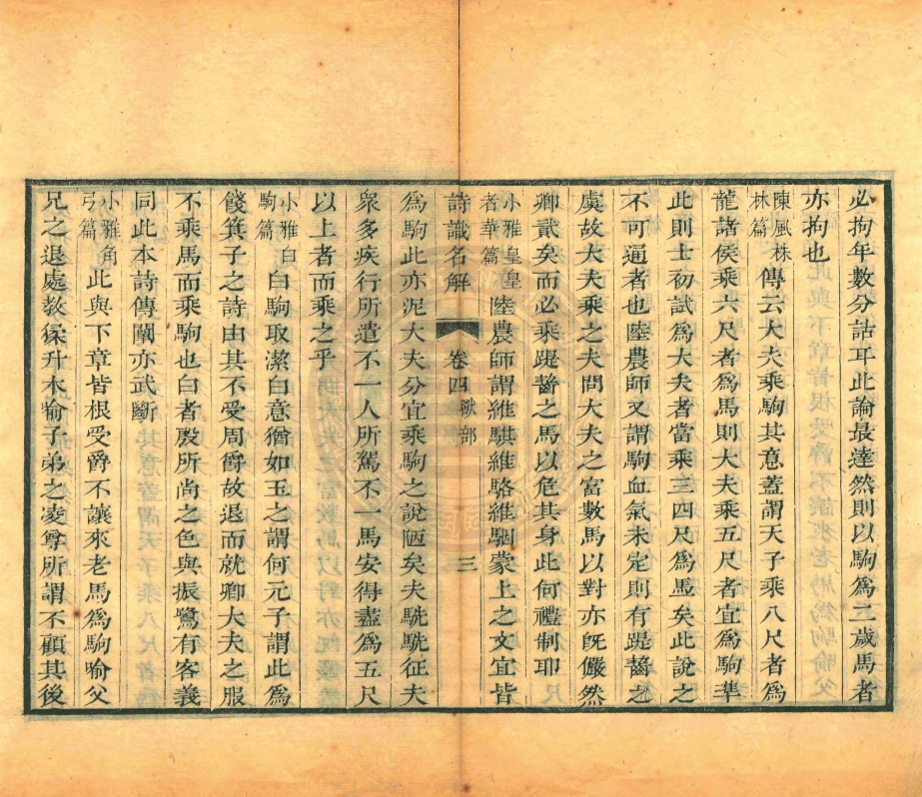 必拘年數分詁耳此論最達然則以駒爲二歲馬者
亦拘也
陳風株林篇傳云大夫乘駒其意蓋謂天子乘八尺者爲
龍諸侯乘六尺者爲馬則大夫乘五尺者宜爲駒準
此則士初試爲大夫者當乘三四尺爲馬矣此說之
不可通者也陸農師又謂駒血氣未定則有踶齧之
虞故大夫乘之夫問大夫之富數馬以對亦旣儼然
卿貳矣而必乘踶齧之馬以危其身此何禮制耶
小雅皇皇者華篇陸農師謂維騏維駱維駰蒙上之文宜皆
詩識名解 卷四獸部 三
爲駒此亦泥大夫分宜乘駒之說陋矣夫駪駪征夫
衆多疾行所遣不一人所駕不一馬安得盡爲五尺
以上者而乘之乎
小雅白駒篇白駒取潔白意猶如玉之謂何元子謂此爲
餞箕子之詩由其不受周爵故退而就卿大夫之服
不乘馬而乘駒也白者殷所尚之色與振鷺有客義
同此本詩傳闡亦武斷
小雅角弓篇此與下章皆根受爵不讓來老馬爲駒喻父
兄之退處敎猱升木喻子弟之凌尊所謂不顧其後